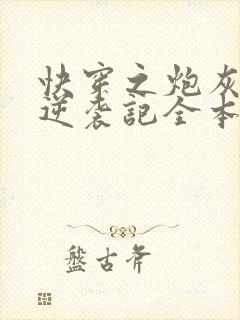 快穿之炮灰
逆袭記全本
盤古斧